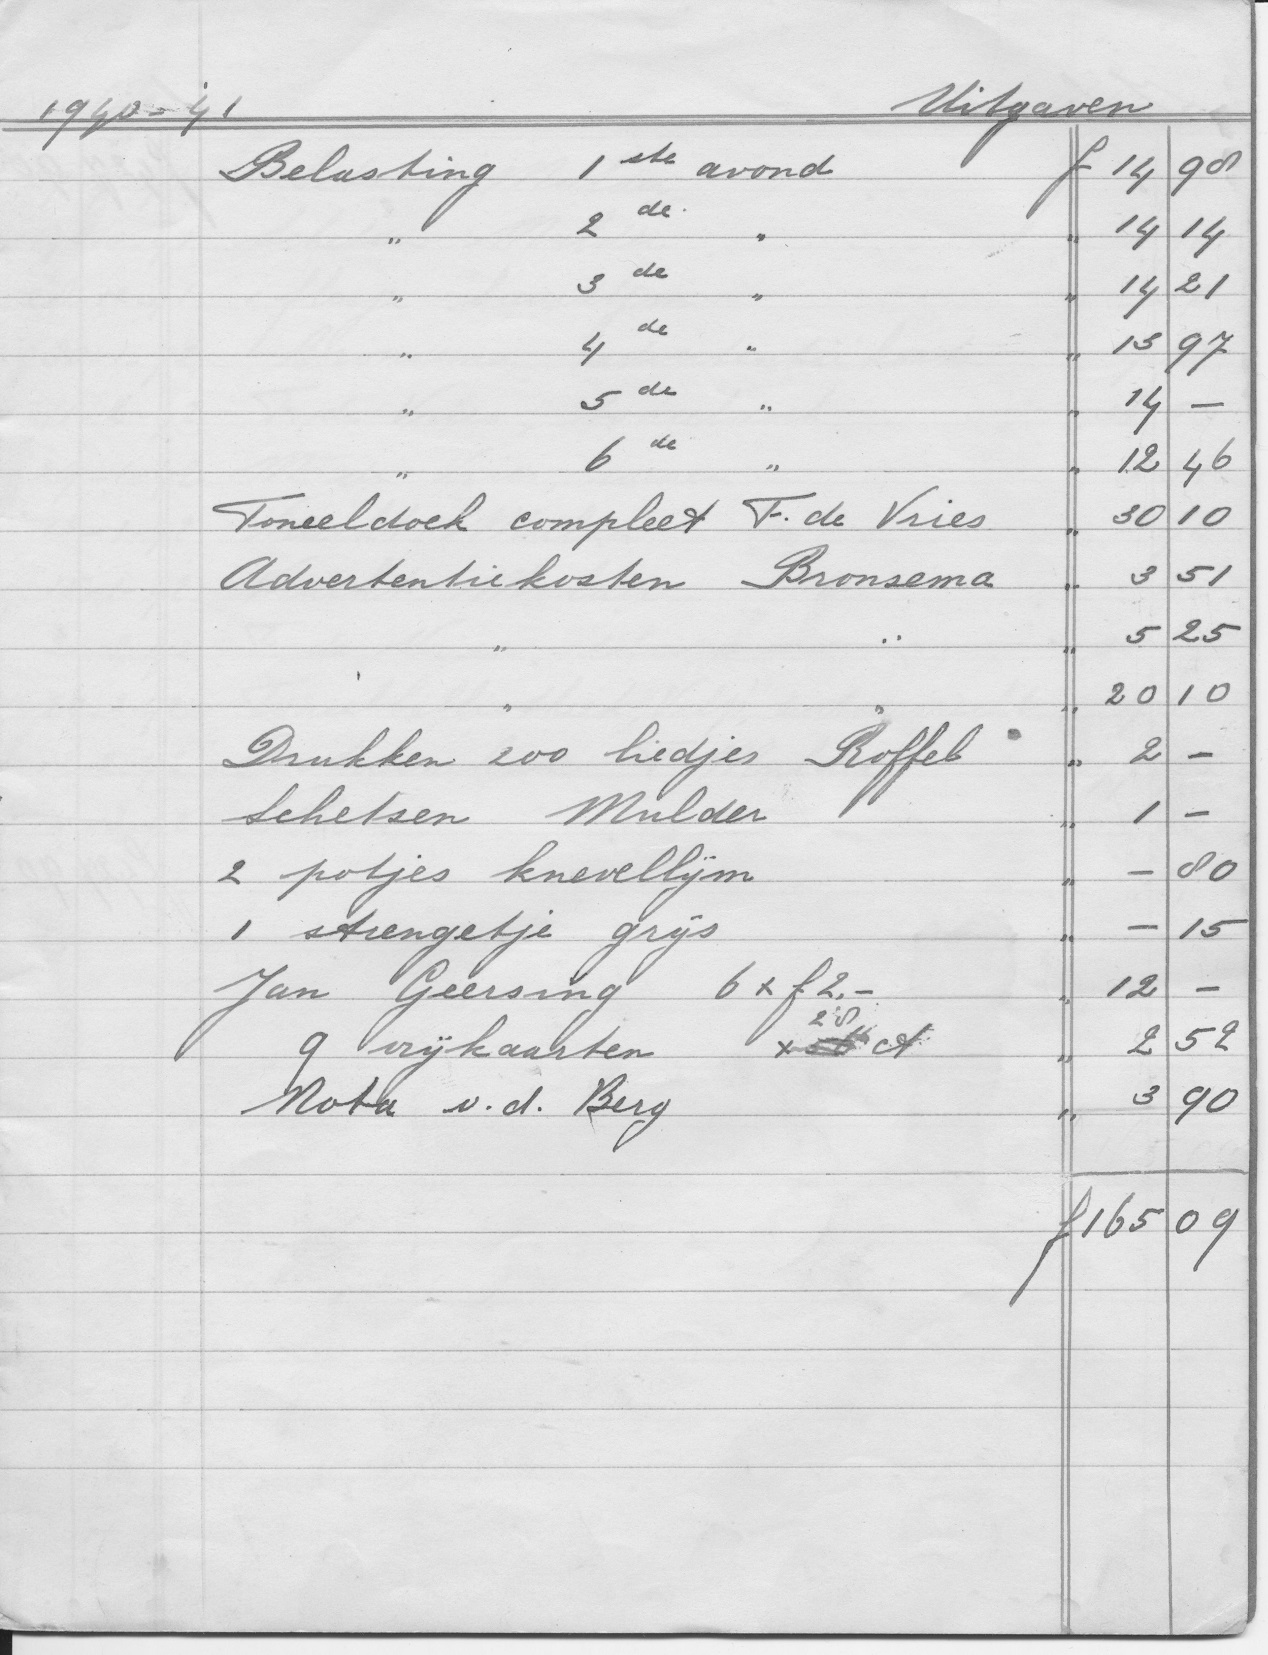 1940-'41 Uitgaven
Belasting 1ste avond f 14 98
" 2de " " 14 14
" 3de " " 14 21
" 4de " " 13 97
" 5de " " 14 —
" 6de " " 12 46
Toneeldoek compleet F. de Vries " 30 10
Advertentiekosten Bronsema " 3 51
" " " 5 25
" " " 20 10
Drukken 200 liedjes Roffel " 2 –
Schetsen Mulder " 1 –
2 potjes knevellijm " — 80
1 strengetje grijs " — 15
Jan Geersing 6 x f 2.– " 12 –
9 vrijkaarten x 28 ct " 2 52
Nota v.d. Berg " 3 90
f 165 09